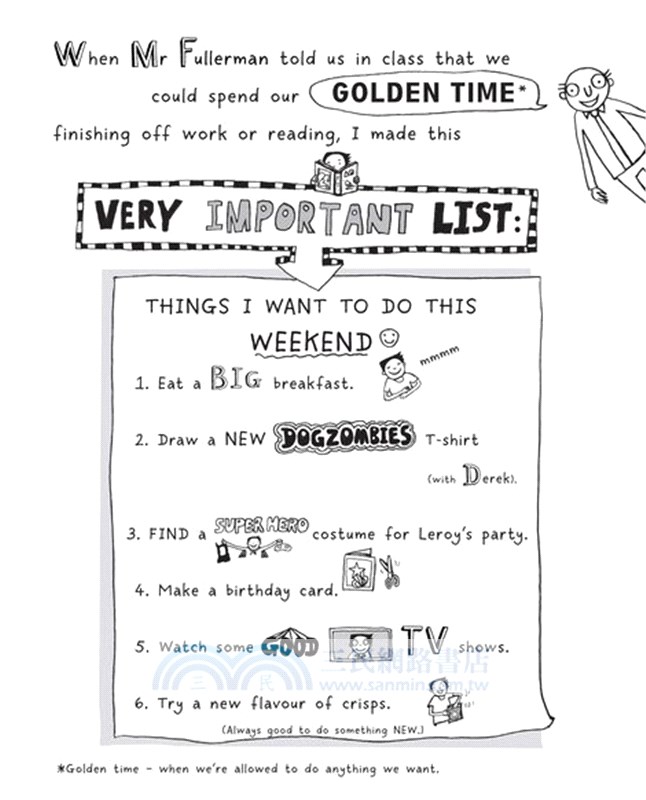 When Mr Fullerman told us in class that we
could spend our GOLDEN TIME*
finishing off work or reading, I made this
VERY IMPORTANT LIST:
THINGS I WANT TO DO THIS
WEEKEND
mmmm
1. Eat a BIG breakfast.
2. Draw a NEW DOGZOMBIES T-shirt
(with Derek).
3. FIND a SUPER HERO costume for Leroy's party.
4. Make a birthday card.
5. Watch some GOOD TV shows.
三民網路書店
三民
www.sanmin.com.tw
6. Try a new flavour of crisps.
(Always good to do something NEW.)
*Golden time - when we're allowed to do anything we want.